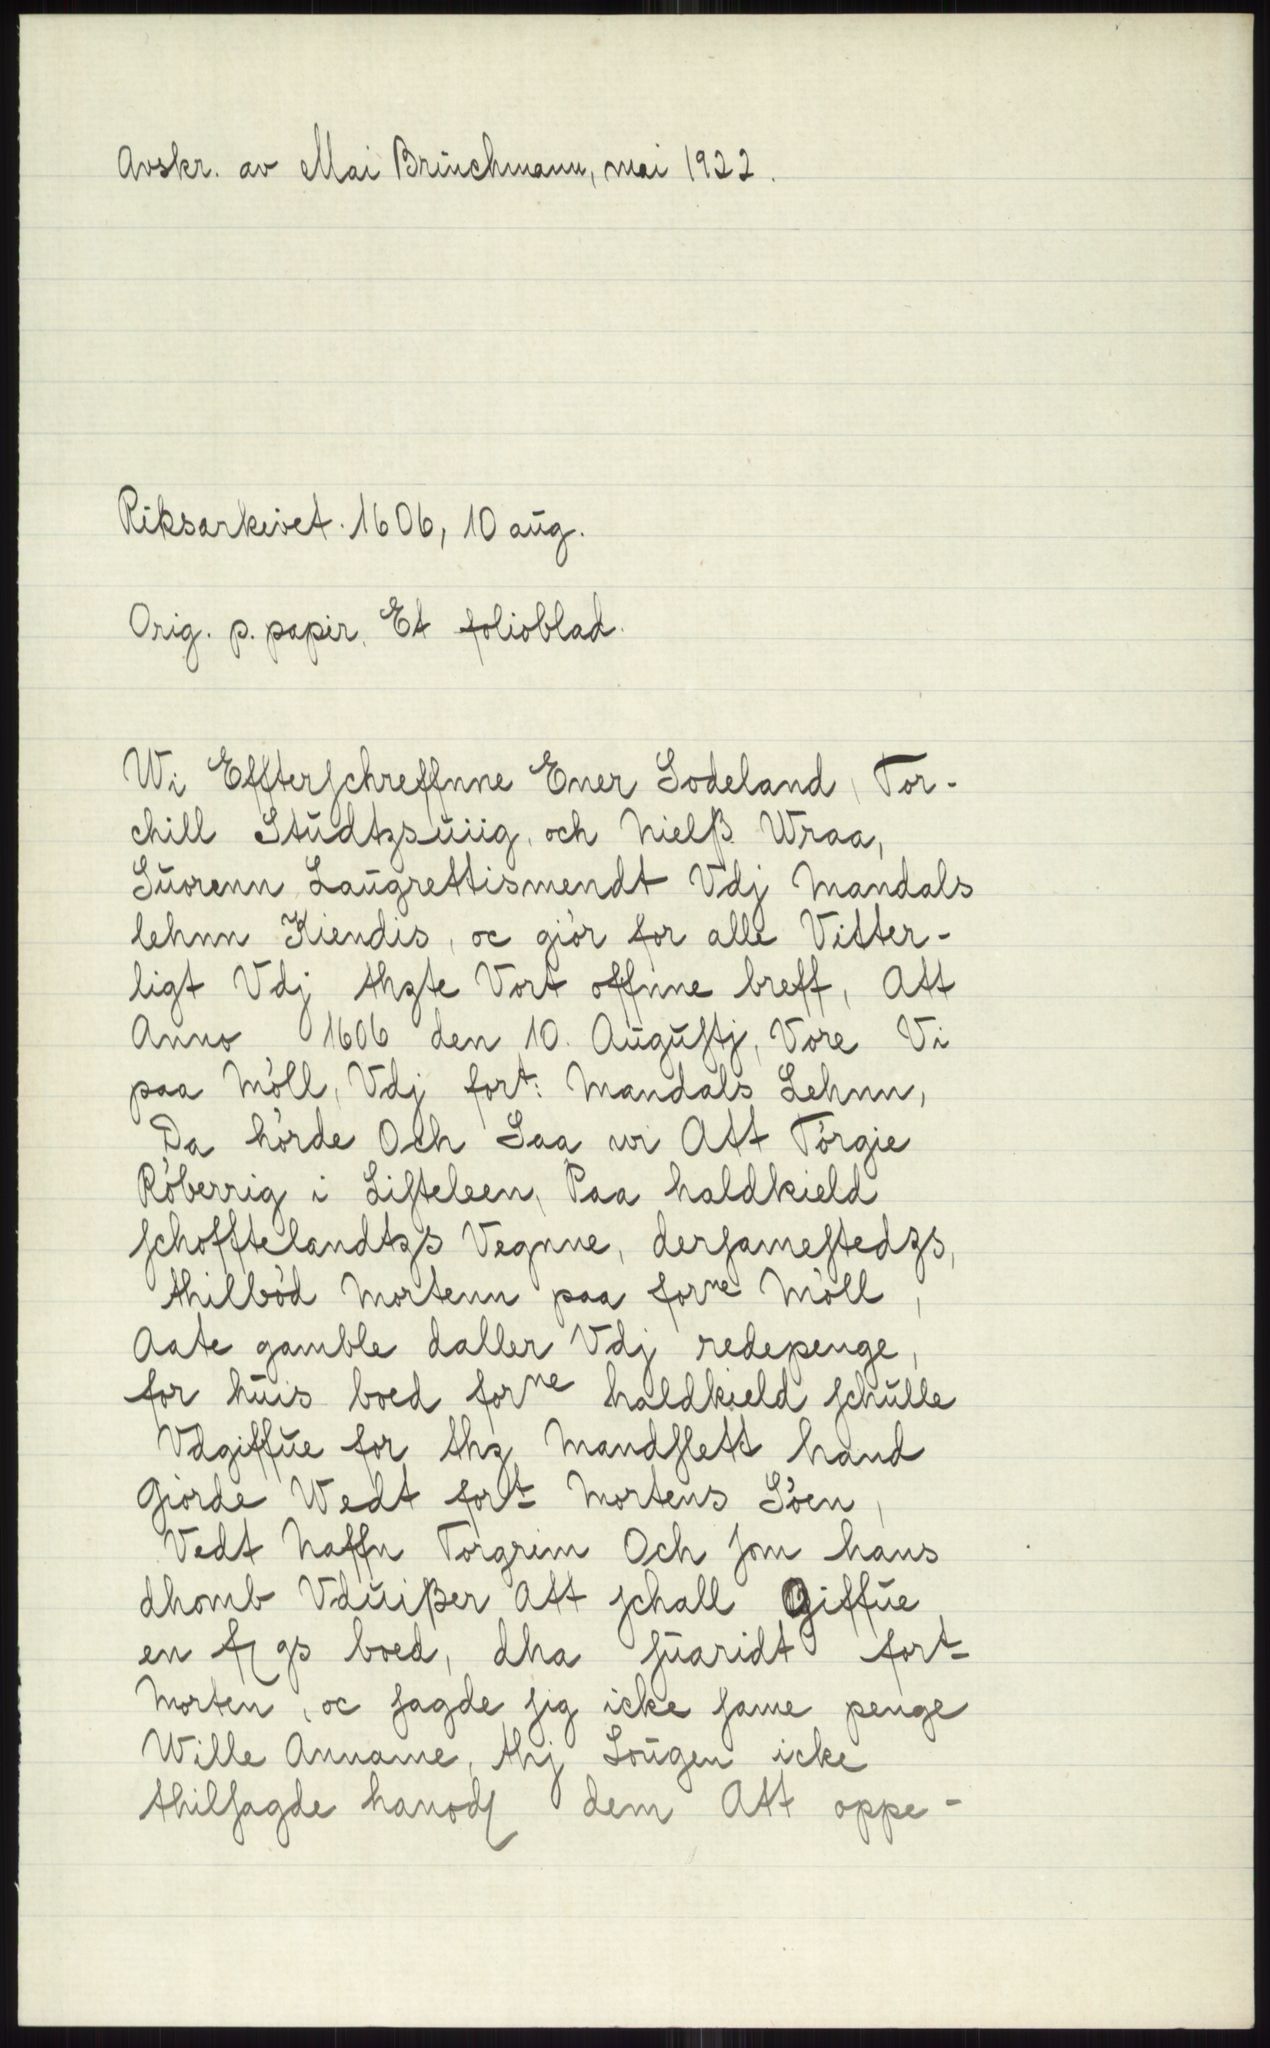 Avskr. av Mai Brünchmann, mai 1922.
Riksarkivet. 1606, 10 aug.
Orig. p. papir. Et folioblad.
Wi Effterschreffnne Ener Sodeland, Tor-
chill Studtzsuiig, och Nielß Wraa,
Suorenn Laugrettismendt Vdj Mandals
lehnn Kiendis, oc giör for alle Vitter-
ligt Vdj thzte Vort offnne breff, Att
Anno 1606 den 10. Augustj, Vore Vi
paa Möll, Vdj fort: Mandals Lehnn,
Da hörde Och Saa wi Att Törgie
Röberrig i Listeleen, Paa haldkield
schofftelandtzs Vegnne, dersamestedzs,
thilböd Mortenn paa forne Möll,
Aate gamble daller Vdj redepenge,
for huis boed forne haldkield schulle
Vdgiffue for thz Mandslett hand
Giorde Wedt fort Mortens Söen,
Vedt Naffn Torgrim Och som hans
dhomb Vduißer Att schall Giffue
en gs boed, dha suaridt fort
Morten, oc sagde sig icke same penge
Wille Anname, thj Lougen icke
thilsagde dem Att oppe-